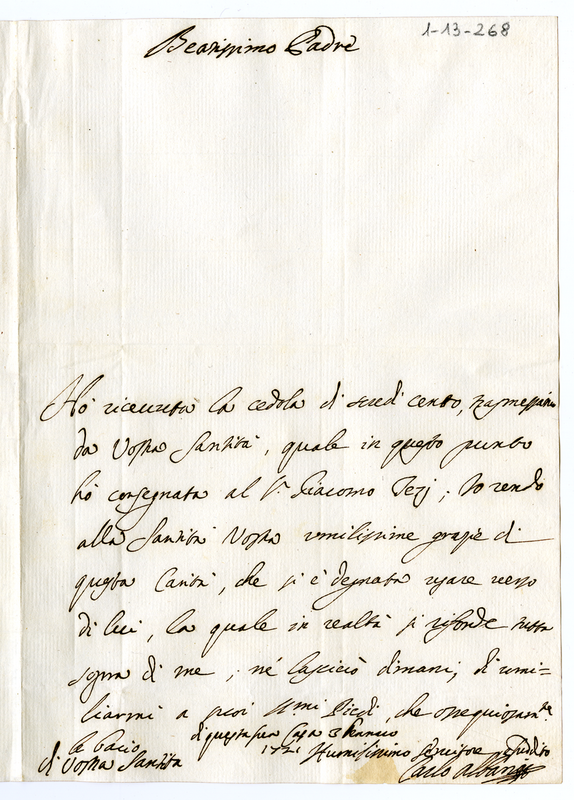 1-13-268
Beatissimo Padre
Hò riceuuta la cedola di scudi cento, trasmessami
da Vostra Santità, quale in questo punto
hò consegnata al Sr. Giacomo Terj; Io rendo
alla Santità Vostra umilissime grazie di
questa Carità, che si è degnata usare verso
di lui, la quale in realtà si rifonde tutta
sopra di me; né lascierò dimani, di umi-
liarmi a suoi SSmi Piedi, che ossequiosamte
le bacio
di questa sua Casa 3
1721
di Vostra Santità
Humilissimo servitore e suddito
Carlo Albani